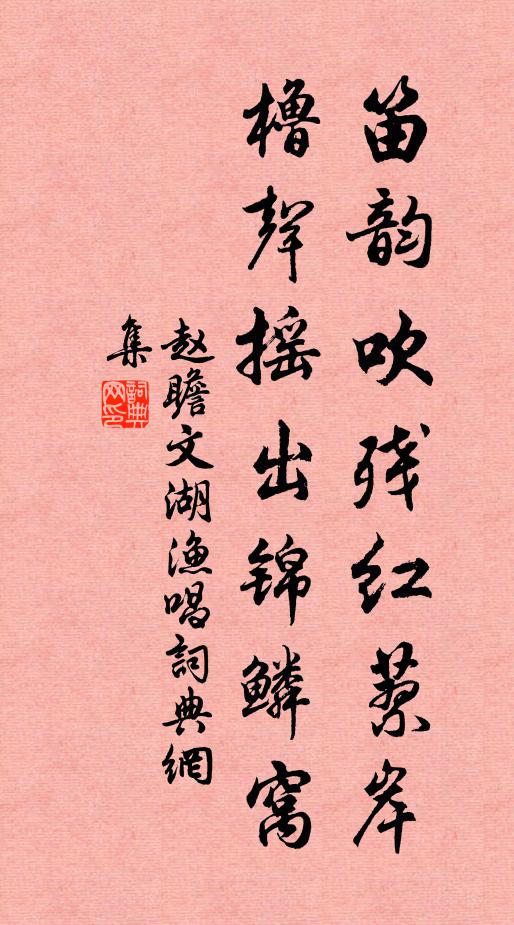 笛韵吹残红蓼岸
橹聲摇出锦鳞窝
赵瞻文湖渔唱詞典網
集
詞典網印